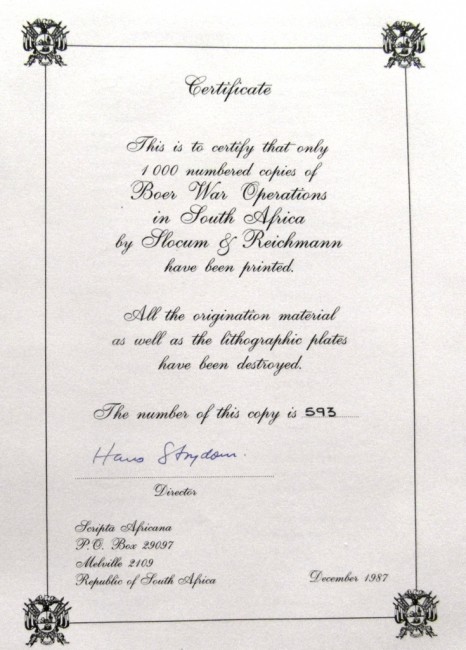 Certificate
This is to certify that only
1 000 numbered copies of
Boer War Operations
in South Africa
by Slocum & Reichmann
have been printed.
All the origination material
as well as the lithographic plates
have been destroyed.
The number of this copy is 593
Hans Strydom.
Director
Scripta Africana
P.O. Box 29097
Melville 2109
Republic of South Africa
December 1987